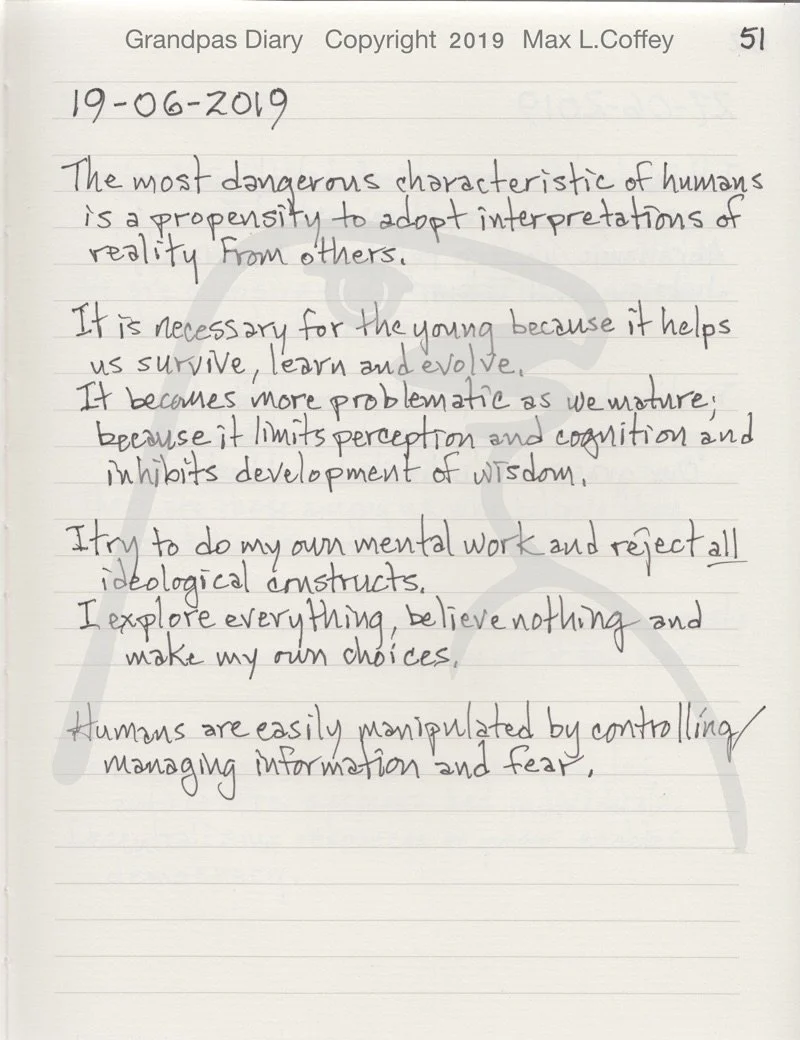 Grandpas Diary Copyright 2019 Max L.Coffey 51
19-06-2019
The most dangerous characteristic of humans
is a propensity to adopt interpretations of
reality from others.
It is necessary for the young because it helps
us survive, learn and evolve.
It becomes more problematic as we mature;
because it limits perception and cognition and
inhibits development of wisdom.
I try to do my own mental work and reject all
ideological constructs.
I explore everything, believe nothing and
make my own choices.
Humans are easily manipulated by controlling/
managing information and fear.